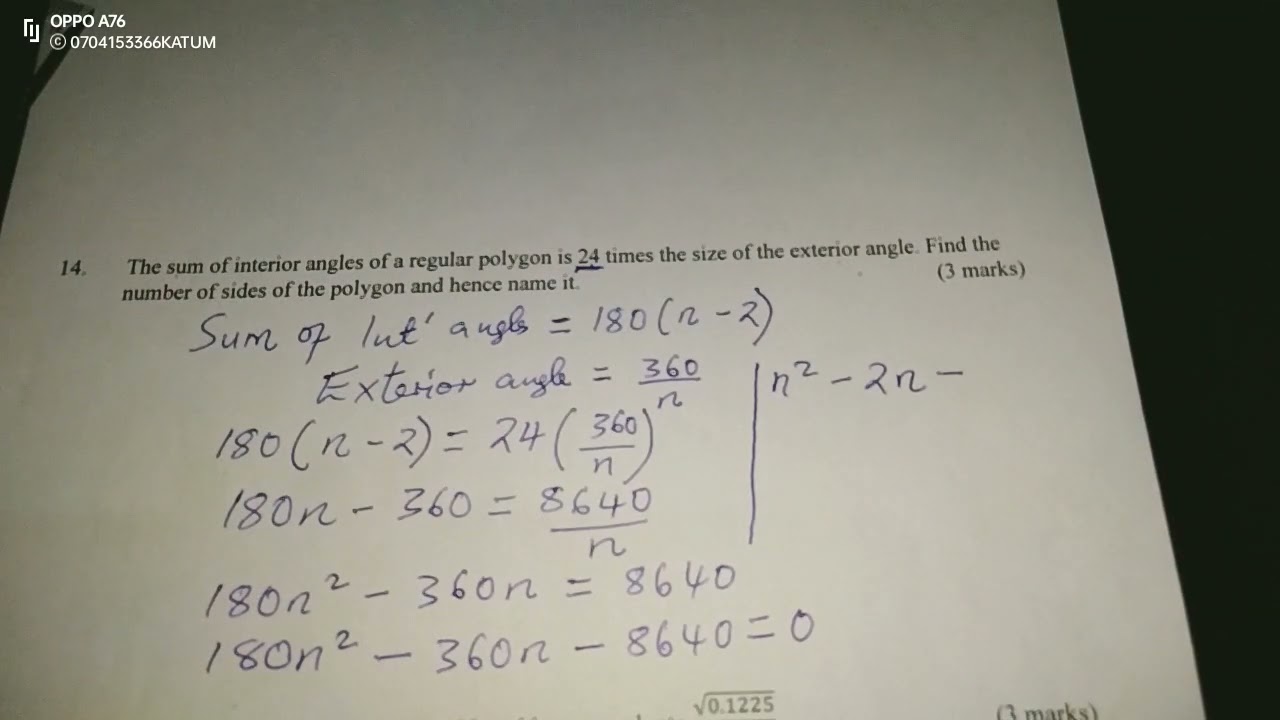 OPPO A76
© 0704153366KATUM
14. The sum of interior angles of a regular polygon is 24 times the size of the exterior angle. Find the
number of sides of the polygon and hence name it. (3 marks)
Sum of Int' angles = 180(n - 2)
Exterior angle = 360/n
180(n - 2) = 24(360/n)
180n - 360 = 8640/n
180n² - 360n = 8640
180n² - 360n - 8640 = 0
n² - 2n -
√0.1225
(3 marks)